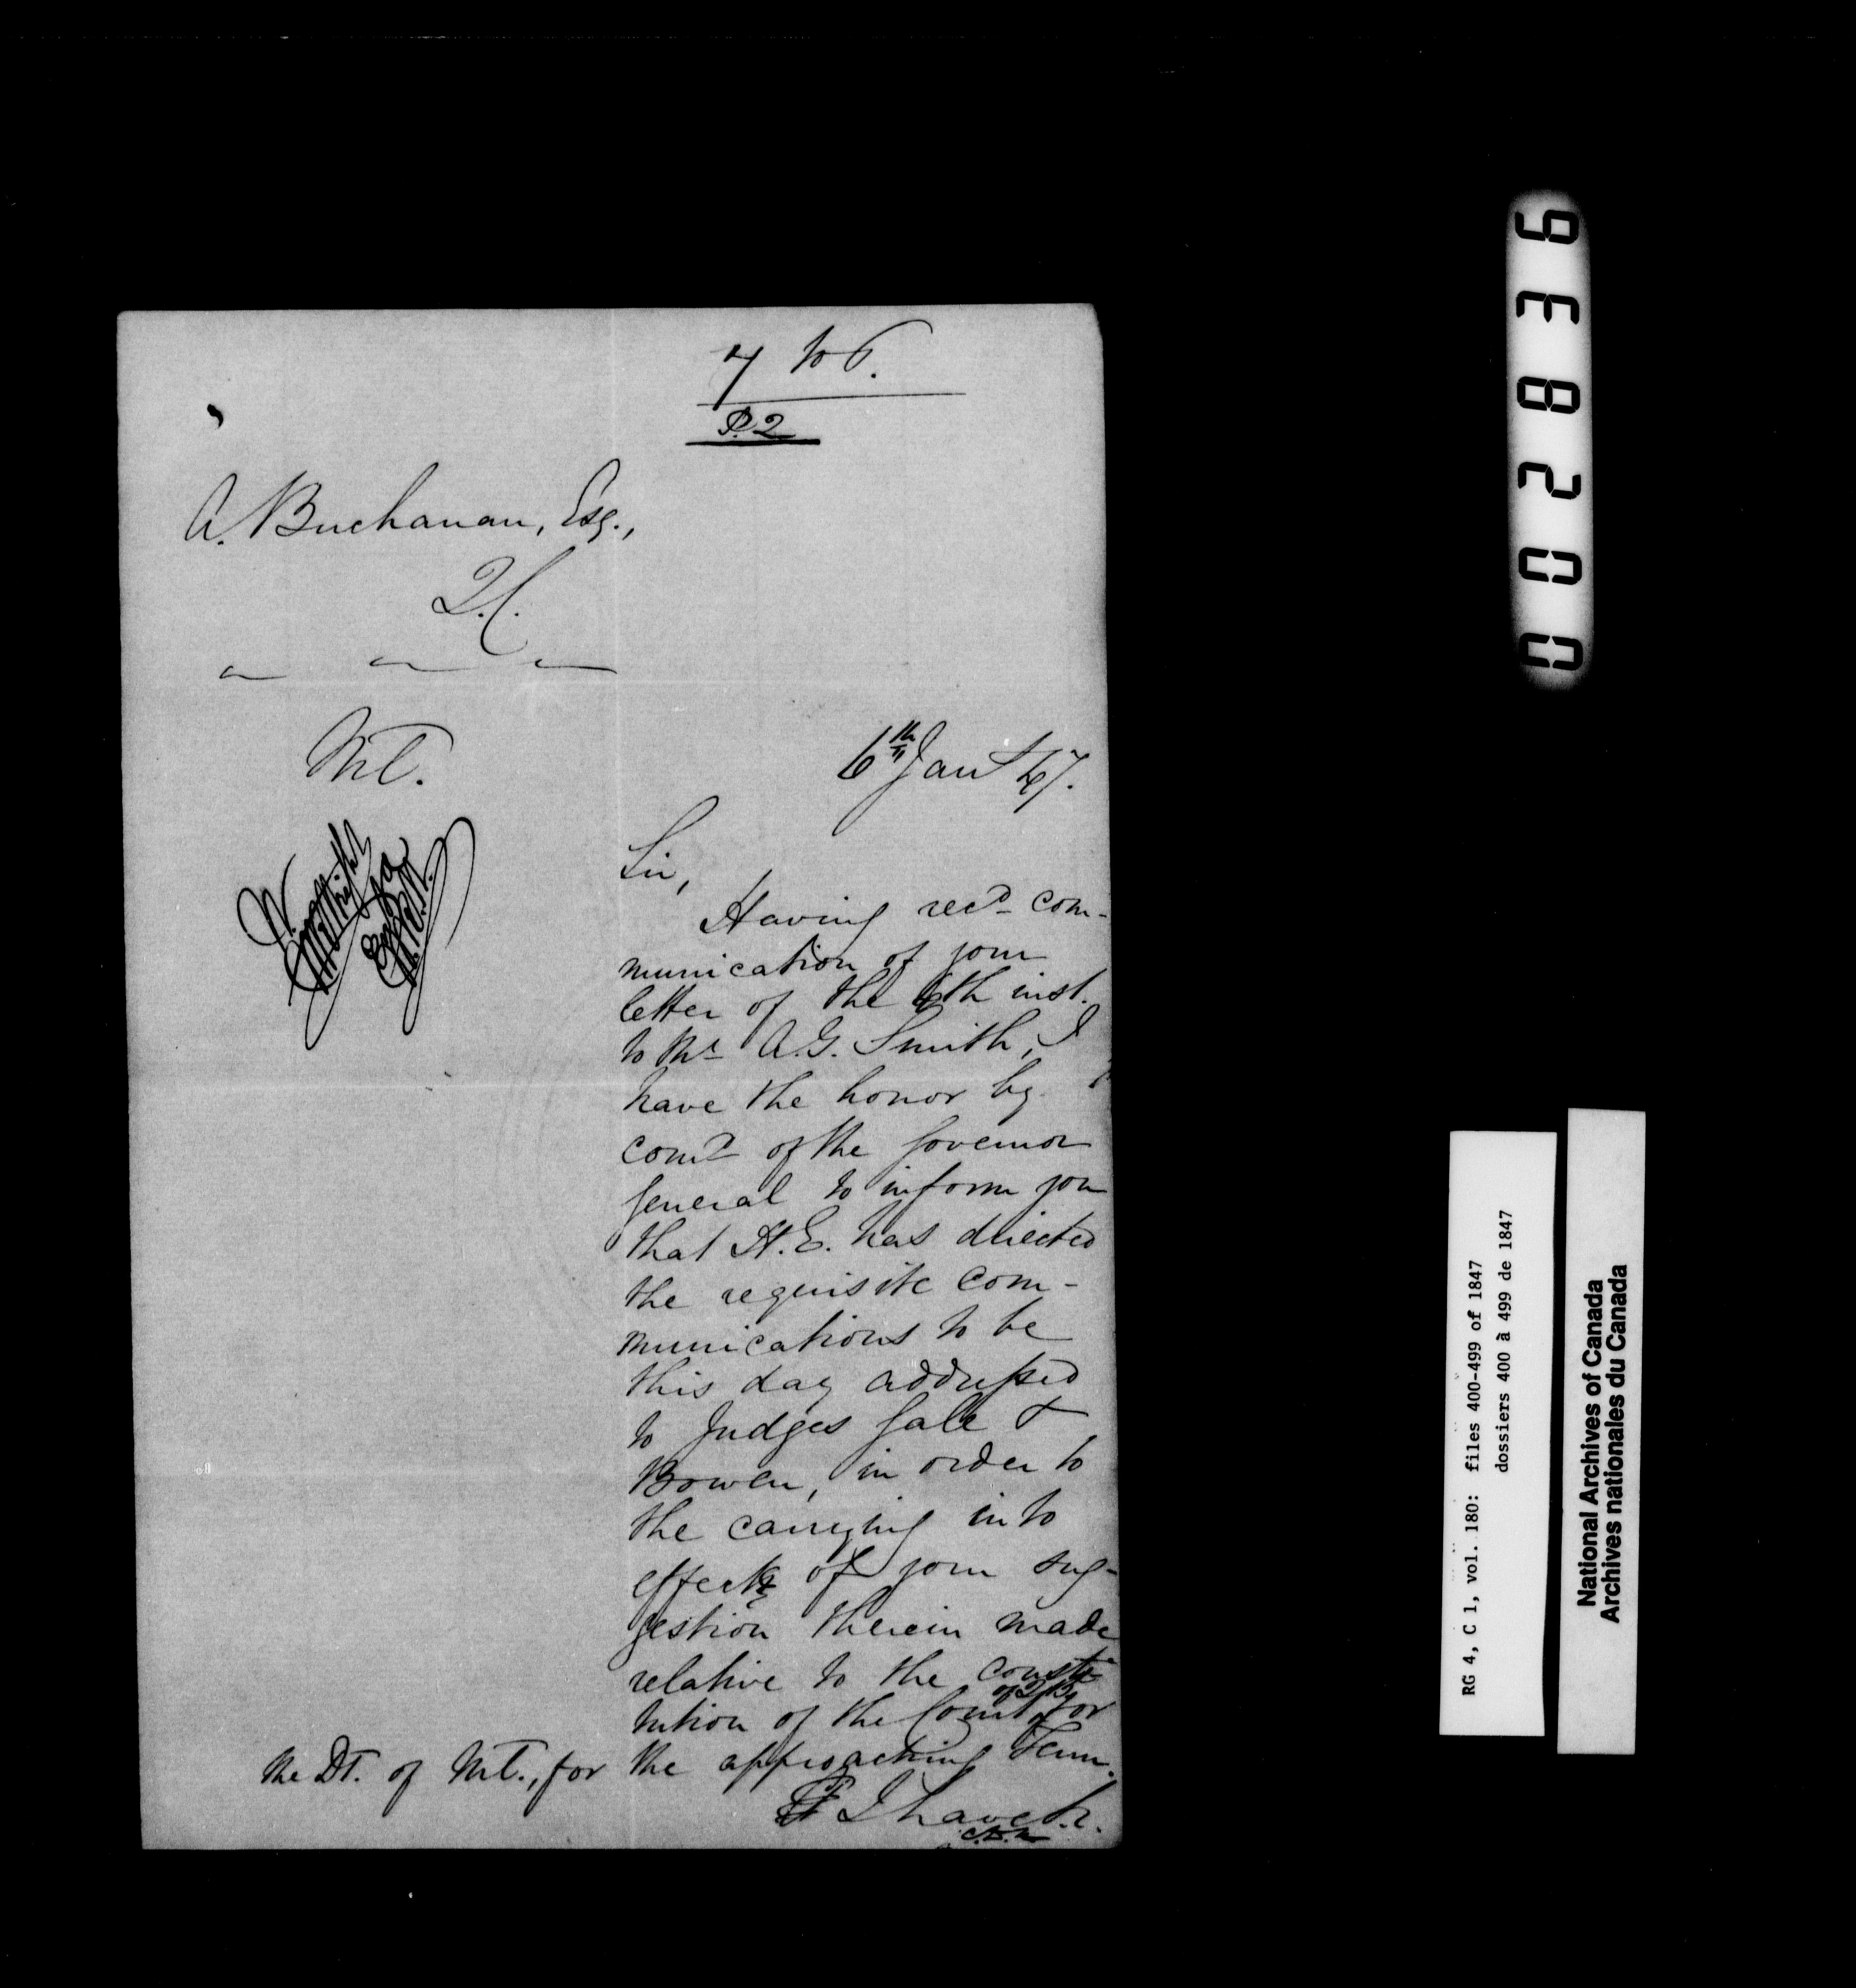 7 to 6.
P. 2
A. Buchanan, Esq.,
Q.C.
Ml.
6th Jany 47.
Sir,
Having recd com-
munication of your
letter of the 6th inst.
to Mr A.G. Smith, I
have the honor by
comd of the Governor
General to inform you
that H.E. has directed
the requisite com-
munications to be
this day addressed
to Judges Gale &
Bowen, in order to
the carrying into
effect of your sug-
gestion therein made
relative to the consti-
tution of the Court of Q.B. for
the Dt. of Ml., for the approaching Term.
I have &c.
009 3 8 2 0 0
RG 4, C 1, vol. 180: files 400-499 of 1847
dossiers 400 à 499 de 1847
National Archives of Canada
Archives nationales du Canada